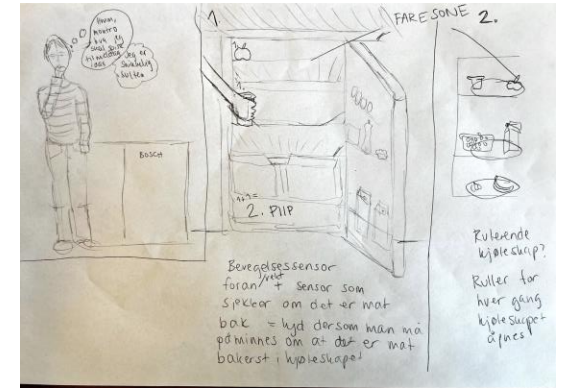 Hmm,
hva
skal
til middag
Jeg er
sulten
BOSCH
1.
FARESONE
2. PIIP
Bevegelsessensor
foran /vekt + sensor som
sjekker om det er mat
bak = lyd dersom man må
påminnes om at det er mat
bakerst i kjøleskapet
2.
Roterende
kjøleskap?
Ruller for
hver gang
kjøleskapet
åpnes